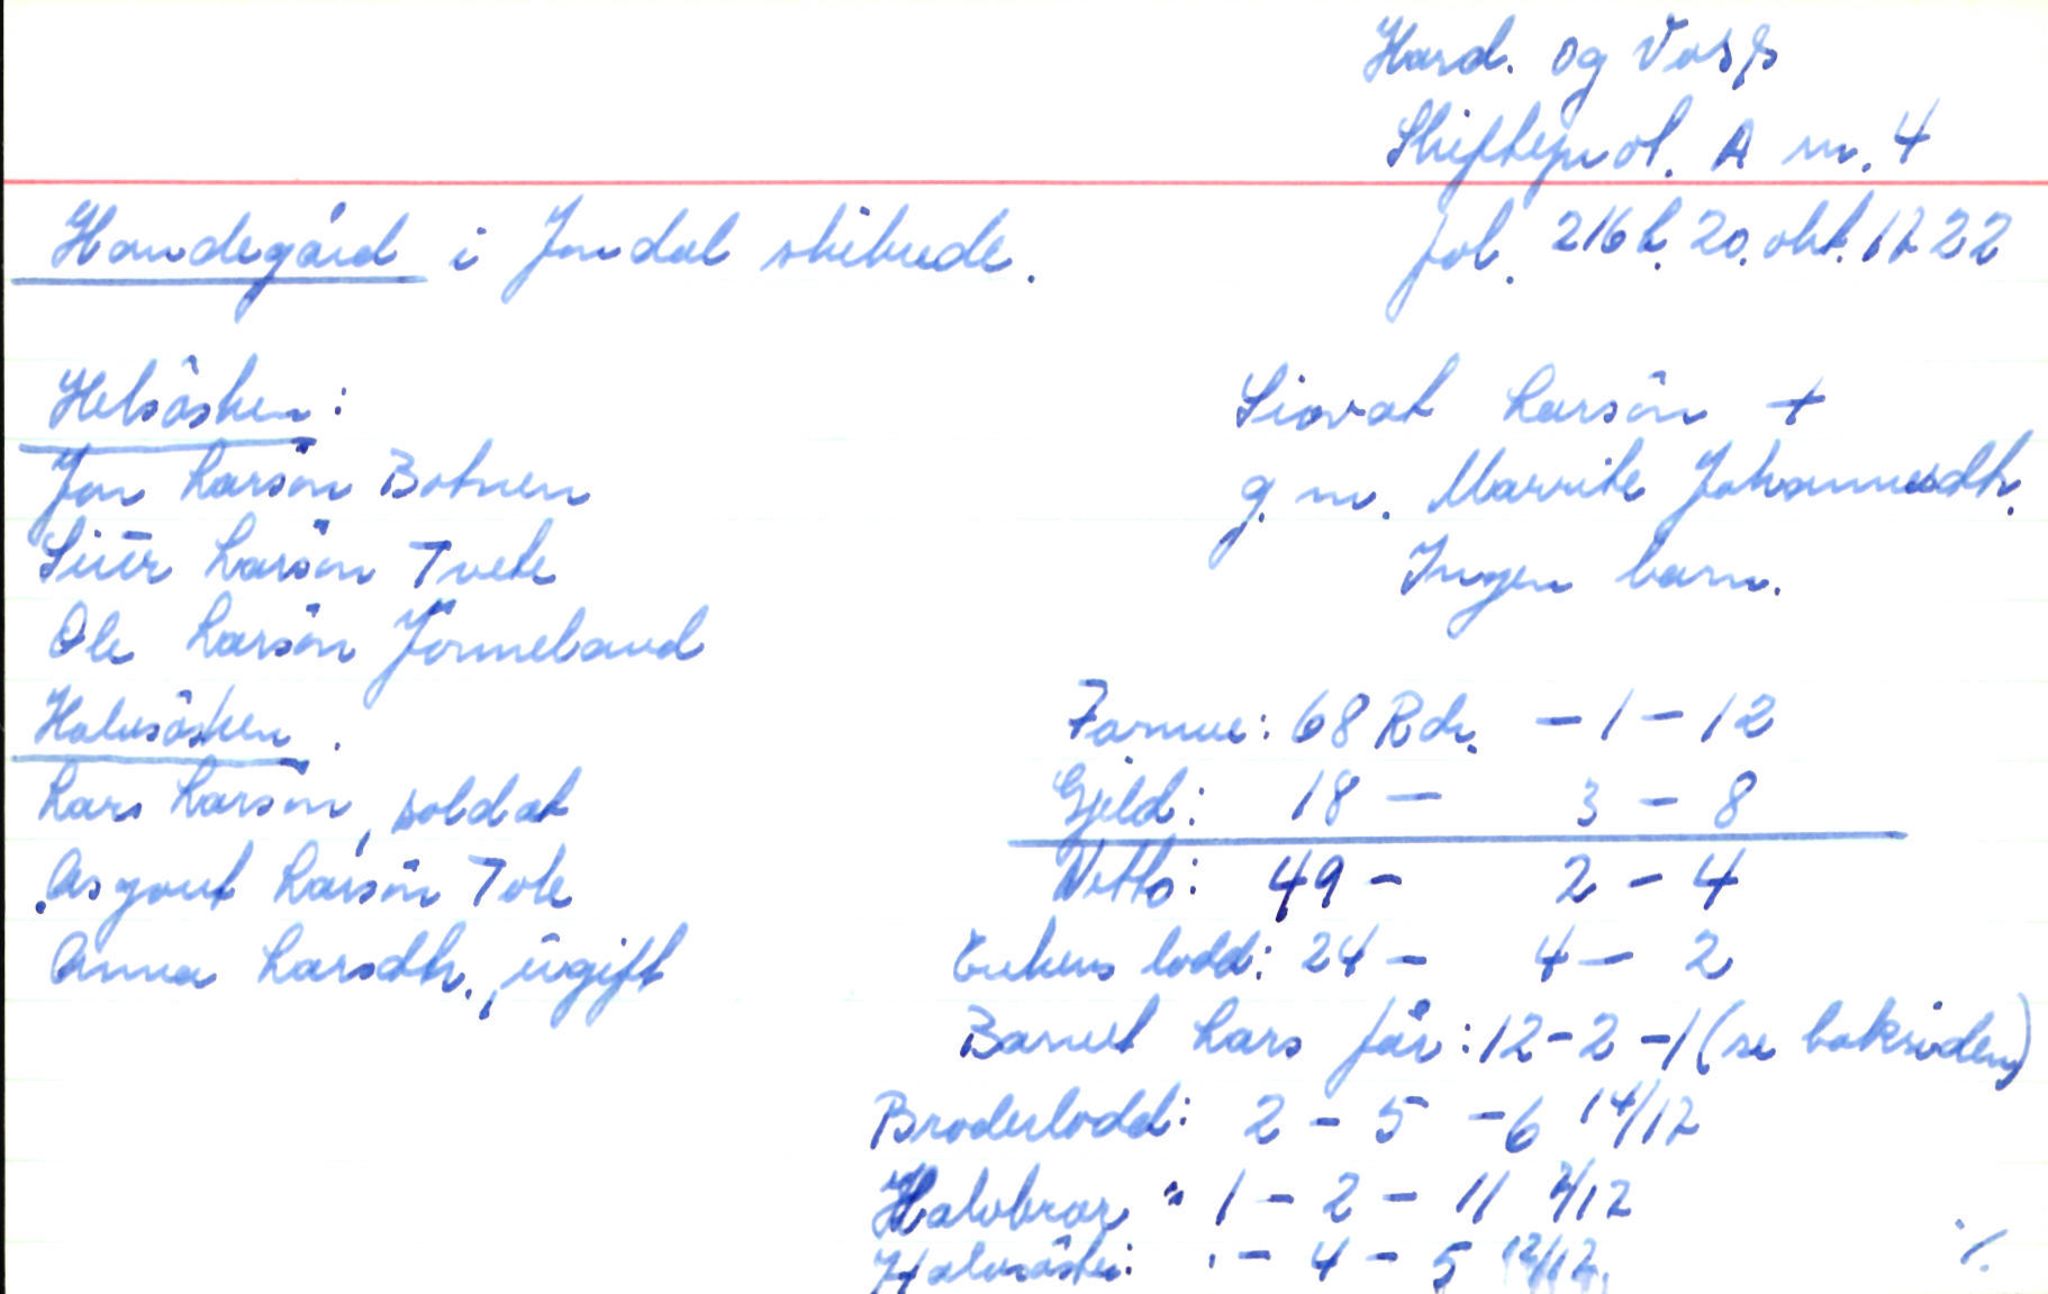 Hard. og Voss
Skifteprot. A nr. 4
Handegård i Jondal skibrede.
fol. 216 b. 20. okt. 1722
Helsösken:
Jon Larsön Botnen
Siūr Larsön Tvete
Ole Larsön Jonneland
Halvsösken.
Lars Larsön, soldat
Asgout Larsön Tote
Anna Larsdtr., ūgift
Siovat Larsön +
g. m. Marrite Johannesdtr.
Ingen barn.
Formue: 68 Rdr. - 1 - 12
Gjeld: 18 - 3 - 8
Netto: 49 - 2 - 4
Enkens lodd: 24 - 4 - 2
Barnet Lars får: 12 - 2 - 1 (se baksiden)
Broderlodd: 2 - 5 - 6 14/17
Halvbror " 1 - 2 - 11 7/17
Halvsöster: . - 4 - 5 12/17.
./.